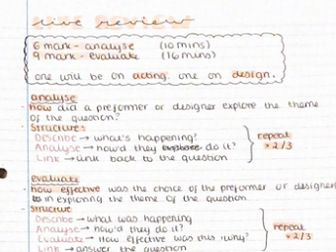 live review
6 mark - analyse (10 mins)
9 mark - evaluate (16 mins)
one will be on acting. one on design.
analyse
how did a preformer or designer explore the theme
of the question?
structure:
Describe → what's happening?
Analyse → how'd they explore do it?
Link → link back to the question
repeat
x 2/3
evaluate
how effective was the choice of the preformer or designer
in exploring the theme of the question.
structure
Describe → what was happening
Analyse → how'd they do it?
Evaluate → How effective was this, why?
Link → answer the question
repeat
x 2/3